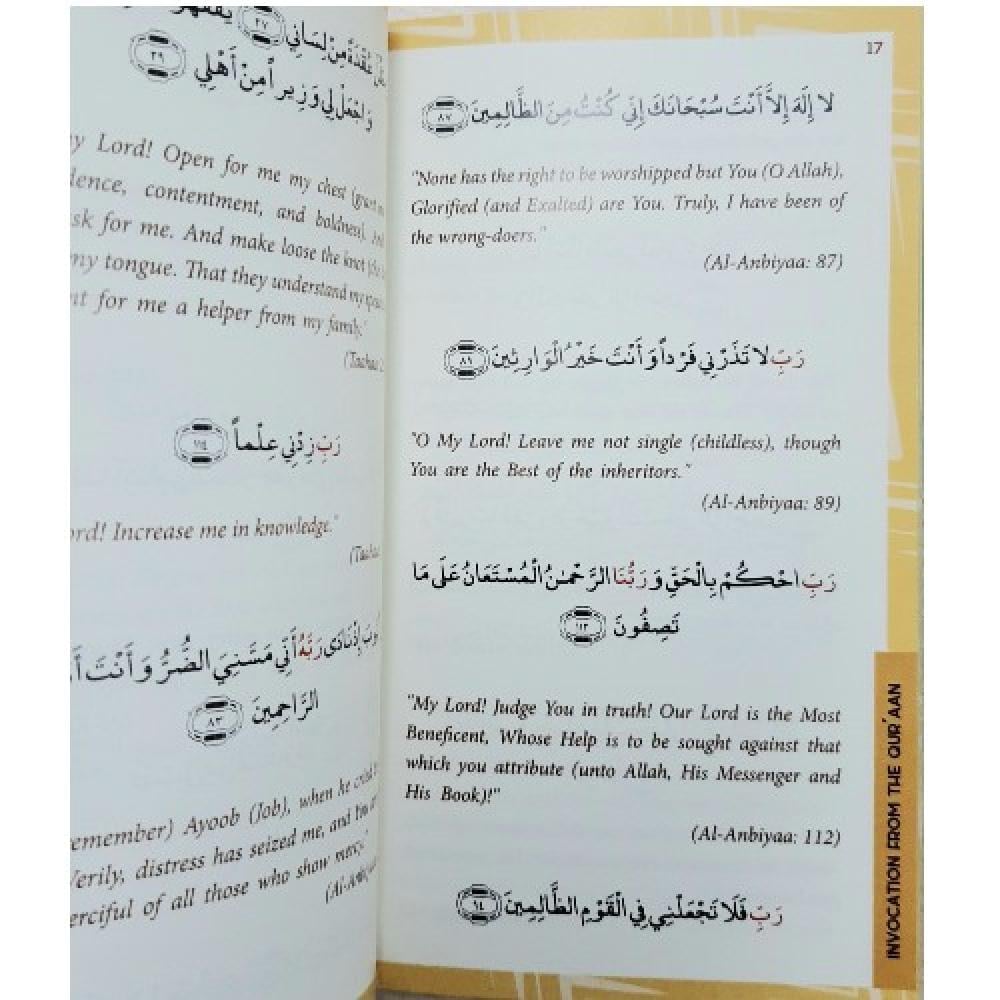 عُقْدَةً مِنْ لِسَانِي ٢٧
وَاجْعَلْ لِي وَزِيراً مِنْ أَهْلِي ٢٩
Lord! Open for me my chest
contentment, and boldness).
for me. And make loose the knot
my tongue. That they understand my
for me a helper from my family."
رَبِّ زِدْنِي عِلْماً ١١٤
Increase me in knowledge."
إِذْ نَادَى رَبَّهُ أَنِّي مَسَّنِيَ الضُّرُّ وَأَنْتَ
الرَّاحِمِينَ ٨٣
Ayoob (Job), when he cried
Verily, distress has seized me, and You
of all those who show mercy."
17
لا إِلَهَ إِلاَّ أَنْتَ سُبْحَانَكَ إِنِّي كُنْتُ مِنَ الظَّالِمِينَ ٨٧
"None has the right to be worshipped but You (O Allah),
Glorified (and Exalted) are You. Truly, I have been of
the wrong-doers."
(Al-Anbiyaa: 87)
رَبِّ لا تَذَرْنِي فَرْداً وَأَنْتَ خَيْرُ الْوَارِثِينَ ٨٩
"O My Lord! Leave me not single (childless), though
You are the Best of the inheritors."
(Al-Anbiyaa: 89)
رَبِّ احْكُمْ بِالْحَقِّ وَرَبُّنَا الرَّحْمَنُ الْمُسْتَعَانُ عَلَى مَا
تَصِفُونَ ١١٢
"My Lord! Judge You in truth! Our Lord is the Most
Beneficent, Whose Help is to be sought against that
which you attribute (unto Allah, His Messenger and
His Book)!"
(Al-Anbiyaa: 112)
رَبِّ فَلَا تَجْعَلْنِي فِي الْقَوْمِ الظَّالِمِينَ
INVOCATION FROM THE QUR'AAN